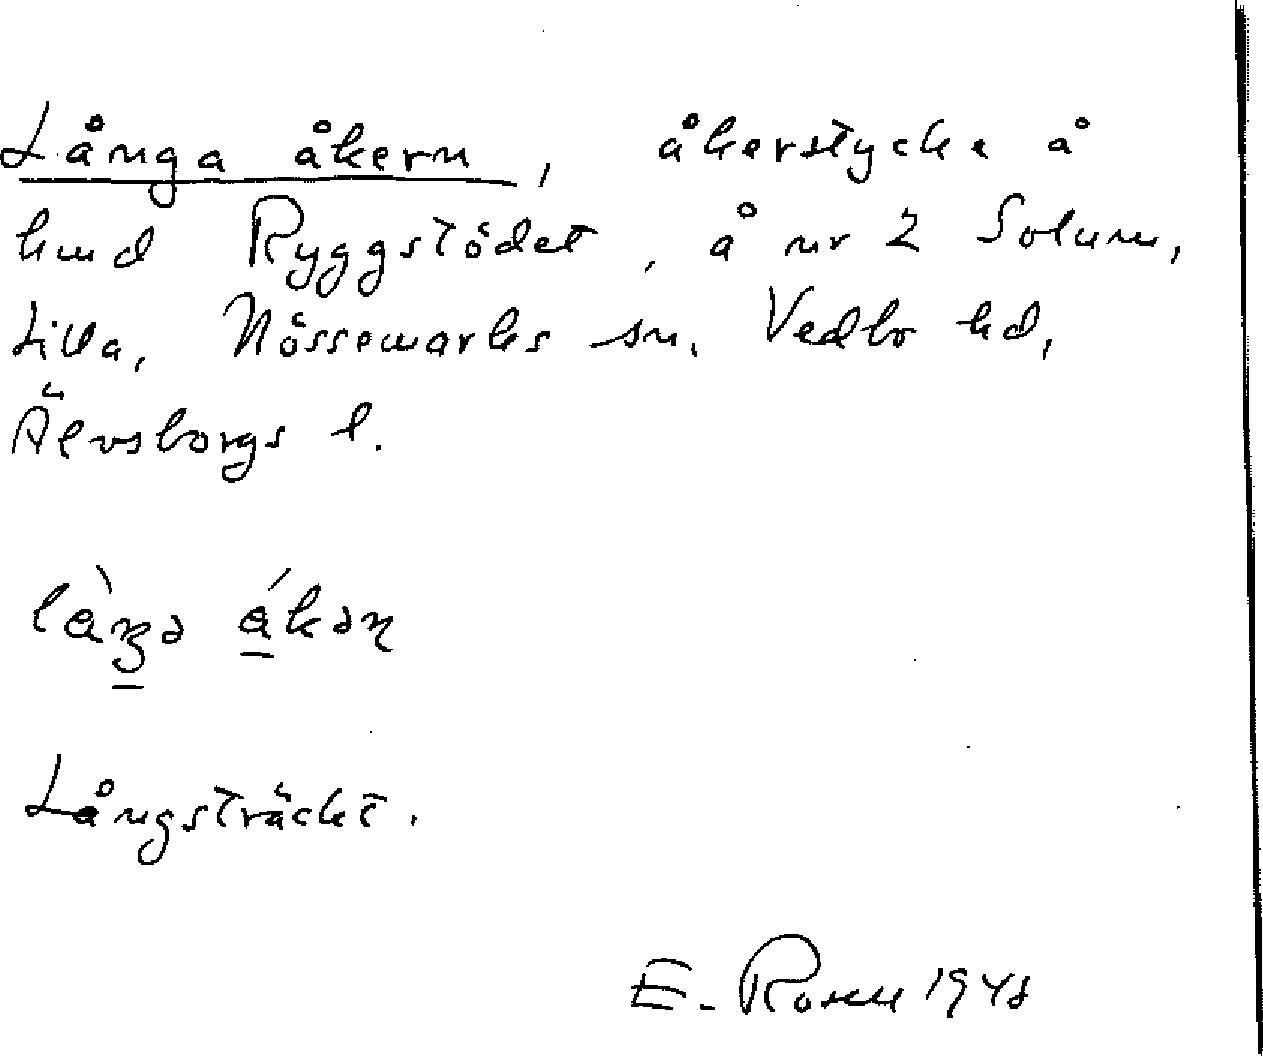 Långa åkern, åkerstycke å
hmd Ryggstödet, å nr 2 Solum,
Lilla, Nössemarks sn. Vedbo hd,
Älvsborgs l.
Långsträckt.
E. Rosell 194